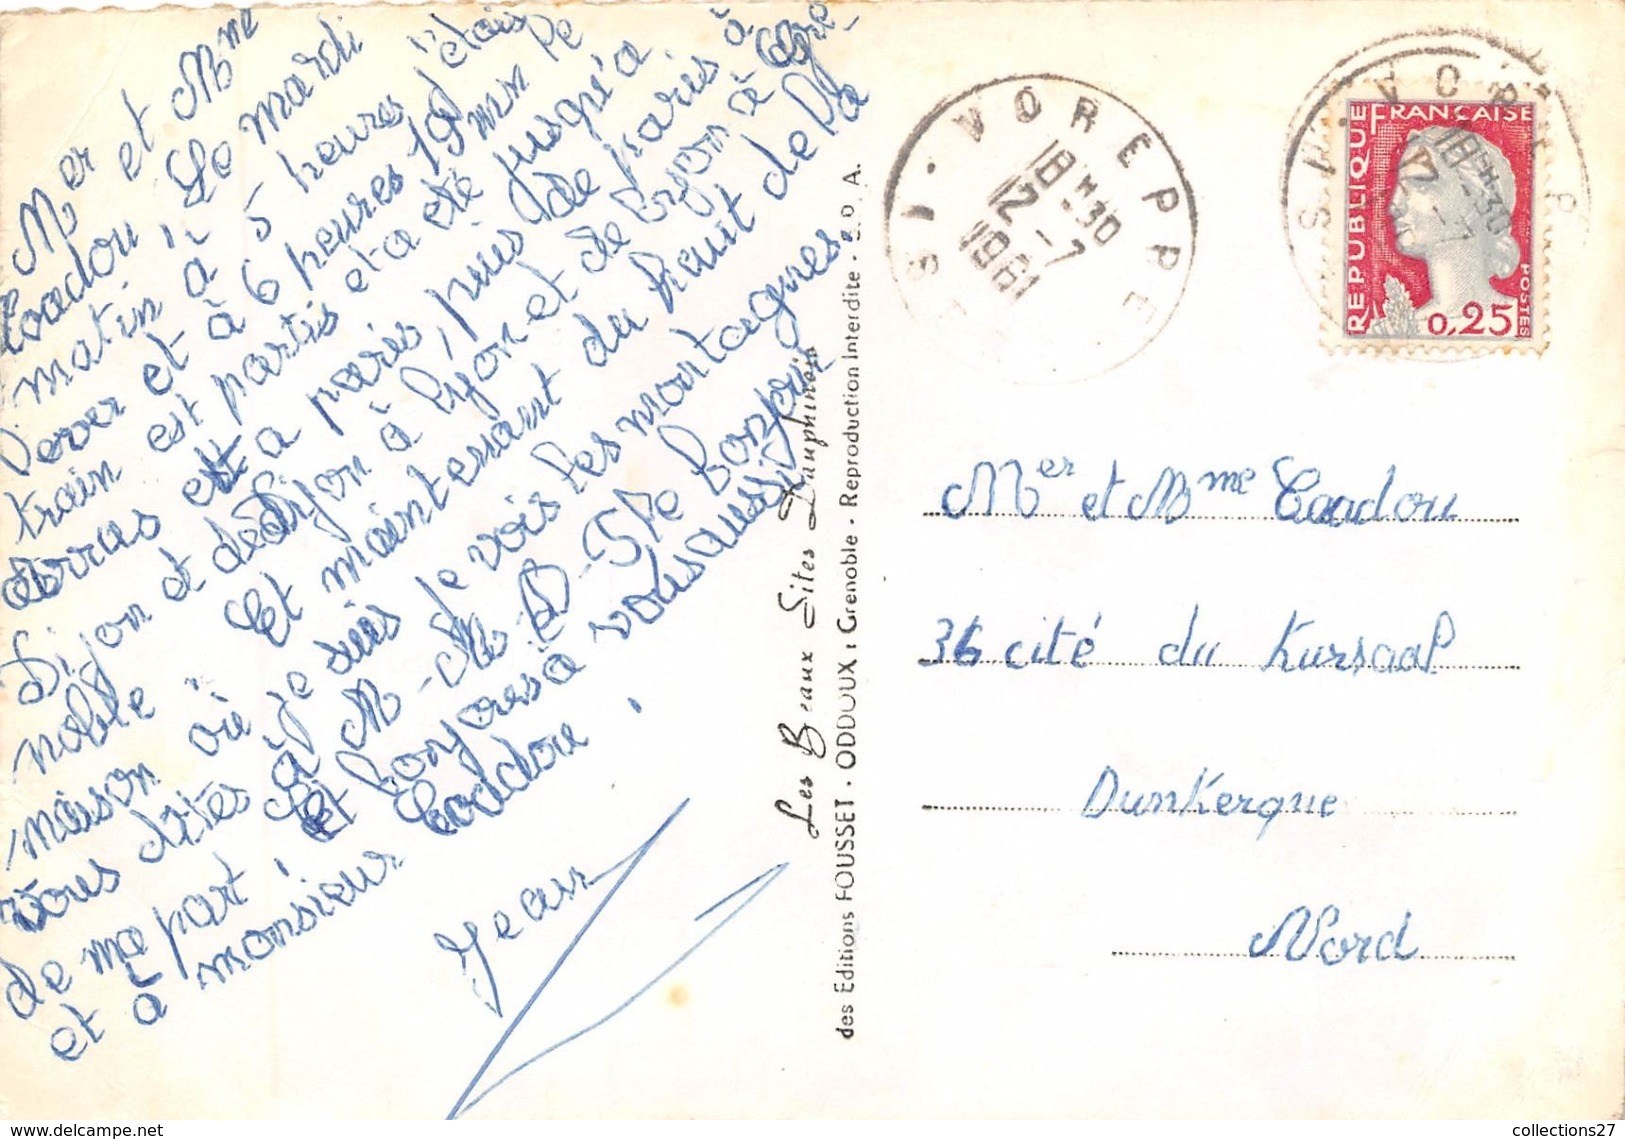 Mer et Mme
Coadou, Le mardi
matin à 5 heures j'étais
lever et à 6 heures 19 mn le
train est partis et a été jusqu'a
Arras et a paris, puis de paris à
Dijon et de Dijon à Lyon et de Lyon à Gre-
noble Et maintenant du haut de la
maison où je suis je vois les montagnes.
vous dites à M-Me D-Ste bonjour
de ma part, et bonjour a vous aussi
et à monsieur Coadou,
Jean
Les Beaux Sites Dauphinois
des Editions FOUSSET - ODDOUX, Grenoble - Reproduction Interdite - S. O. A.
VOREPPE
18 H 30
12 - 7
1961
ISÈRE
VOREPPE
18 H 30
12 - 7
IS
REPUBLIQUE
FRANÇAISE
POSTES
0,25
Mer et Mme Coadou
36 cité du Kursaal
Dunkerque
Nord
collections27